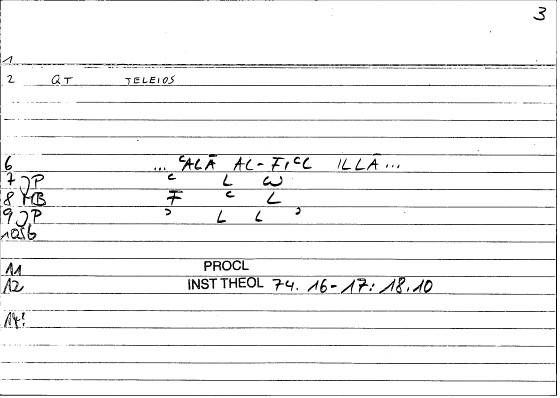 3
1
2 QT TELEIOS
6 ... ʿALĀ AL-FIʿL ILLĀ ...
7 JP ʿ L W
8 MB F ʿ L
9 JP ʾ L L ʾ
10 SB
11 PROCL
12 INST THEOL 74. 16-17: 18.10
14!